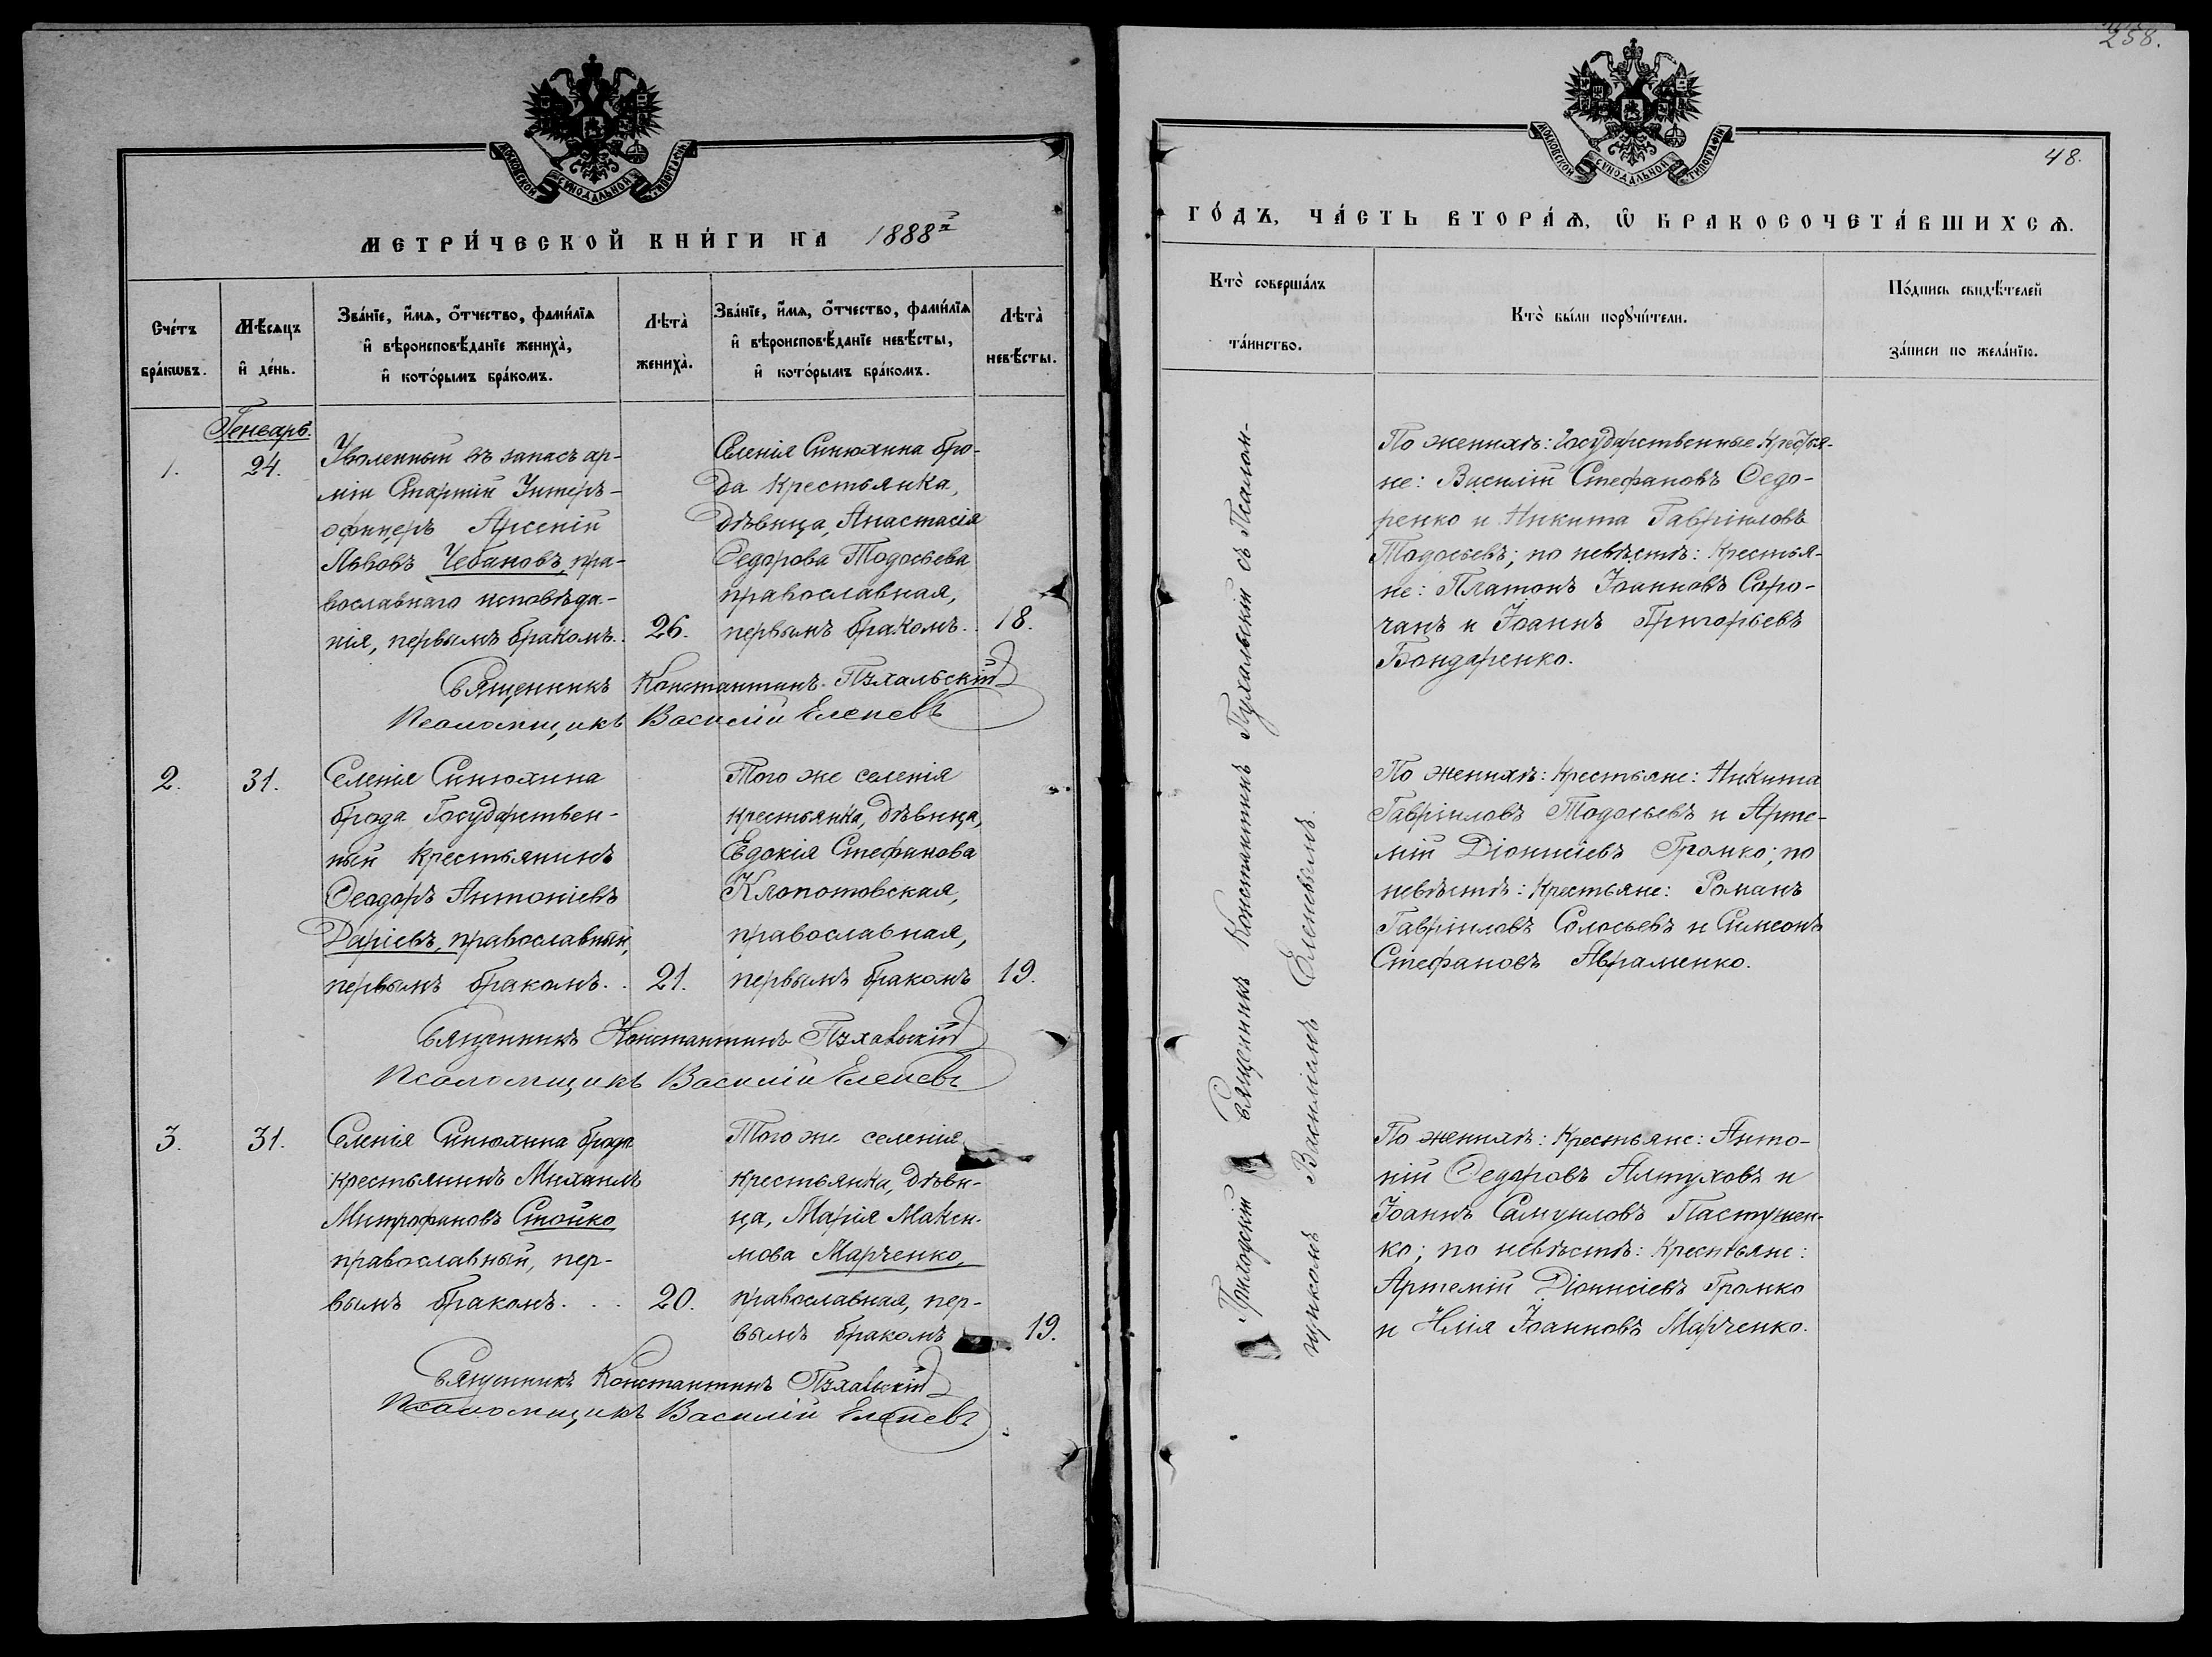 258.
МОСКОВСКОЙ СѴНОДАЛЬНОЙ ТИПОГРАФІИ
МЕТРИ́ЧЕСКОЙ КНИ́ГИ НА 1888й
Сче́тъ бра́кѡвъ.
Мѣ́сѧцъ и҆ де́нь.
Зва́нїе, и҆́мѧ, ѻ҆́тчество, фами́лїѧ
и҆ вѣроисповѣ́данїе жениха̀,
и҆ кото́рымъ бра́комъ.
Лѣта̀ жениха̀.
Зва́нїе, и҆́мѧ, ѻ҆́тчество, фами́лїѧ
и҆ вѣроисповѣ́данїе невѣ́сты,
и҆ кото́рымъ бра́комъ.
Лѣта̀ невѣ́сты.
Генварь.
1.
24.
Уволенный въ запасъ ар-
міи Старшій Унтеръ-
офицеръ Арсеній
Львовъ Чебановъ, пра-
вославнаго исповѣда-
нія, первымъ бракомъ.
26.
Селенія Синюхина бро-
да крестьянка,
дѣвица, Анастасія
Ѳедорова Тодосьева
православная,
первымъ бракомъ.
18.
Священникъ Константинъ Пухальскій
Псаломщикъ Василій Еленевъ
2.
31.
Селенія Синюхина
брода Государствен-
ный крестьянинъ
Ѳеодоръ Антоніевъ
Даріевъ, православный,
первымъ бракомъ.
21.
Того же селенія
крестьянка, дѣвица,
Евдокія Стефанова
Клопотовская,
православная,
первымъ бракомъ
19.
Священникъ Константинъ Пухальскій
Псаломщикъ Василій Еленевъ
3.
31.
Селенія Синюхина брода
крестьянинъ Михаилъ
Митрофановъ Стойко
православный, пер-
вымъ бракомъ. . .
20.
Того же селенія
крестьянка, дѣви-
ца, Марія Макси-
мова Марченко,
православная, пер-
вымъ бракомъ
19.
Священникъ Константинъ Пухальскій
Псаломщикъ Василій Еленевъ
МОСКОВСКОЙ СѴНОДАЛЬНОЙ ТИПОГРАФІИ
48.
ГО́ДЪ, ЧА́СТЬ ВТОРА́Ѧ, Ѡ҆ БРАКОСОЧЕТА́ВШИХСѦ.
Кто̀ соверша́лъ
та́инство.
Кто̀ бы́ли порꙋчи́тели.
По́дпись свидѣ́телей
за́писи по жела́нїю.
Приходскій Священникъ Константинъ Пухальскій съ Псалом-
щикомъ Василіемъ Еленевымъ.
По женихѣ: Государственные крестья-
не: Василій Стефановъ Ѳедо-
ренко и Никита Гавріиловъ
Тодосьевъ; по невѣстѣ: Крестья-
не: Платонъ Іоанновъ Соро-
чанъ и Іоаннъ Григорьевъ
Бондаренко.
По женихѣ: Крестьяне: Никита
Гавріиловъ Тодосьевъ и Арте-
мій Діонисіевъ Громко; по
невѣстѣ: Крестьяне: Романъ
Гавріиловъ Солосьевъ и Симеонъ
Стефановъ Авраменко.
По женихѣ: Крестьяне: Анто-
ній Ѳедоровъ Алтуховъ и
Іоаннъ Самуиловъ Пастушен-
ко; по невѣстѣ: Крестьяне:
Артемій Діонисіевъ Громко
и Илія Іоанновъ Марченко.